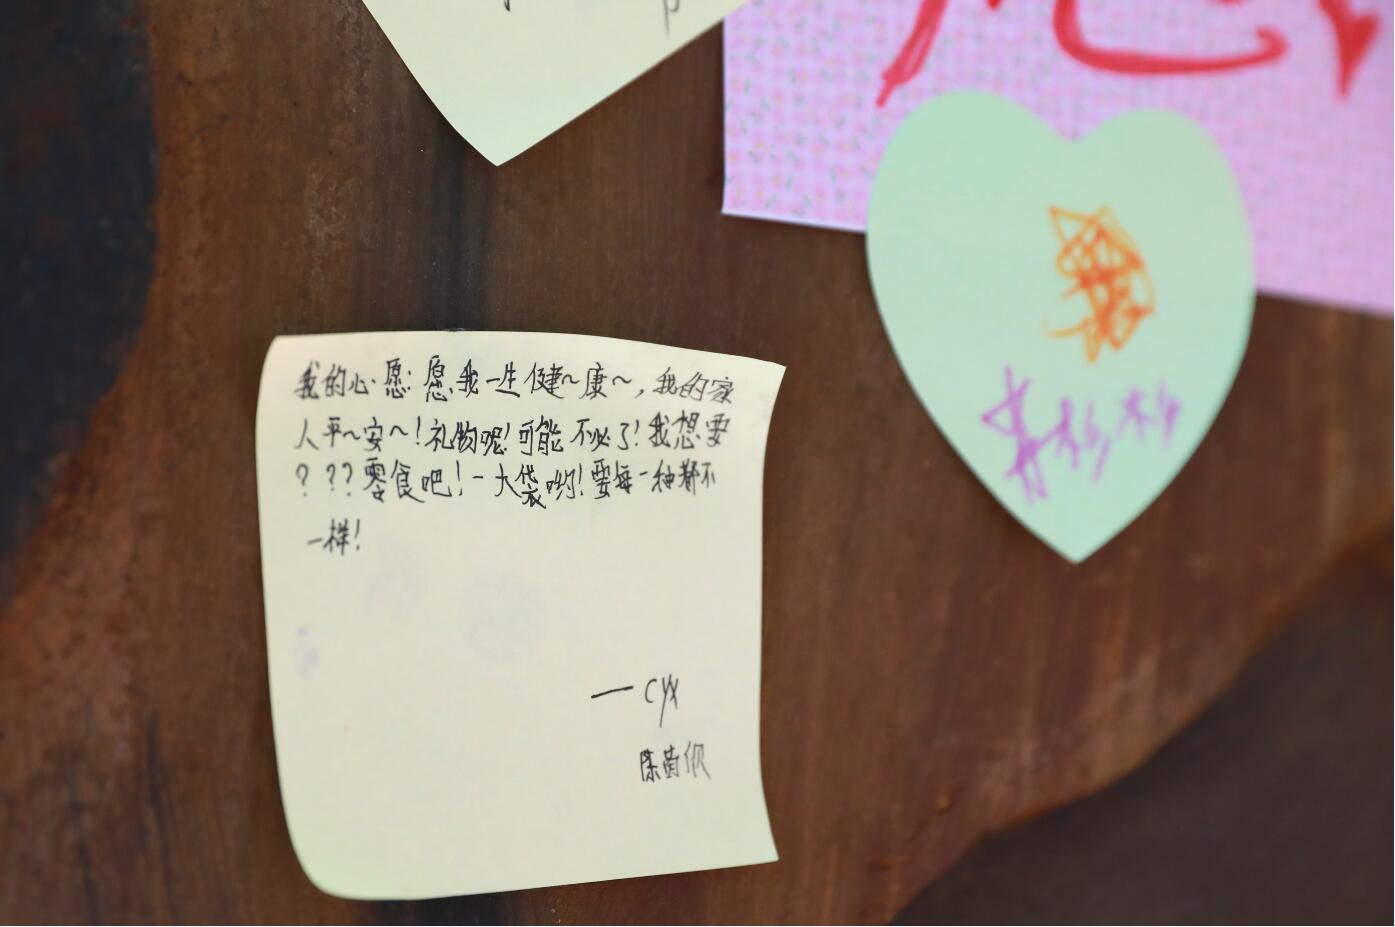 我的心愿:愿我一生健~康~,我的家
人平~安~!礼物呢!可能不必了!我想要
???零食吧!一大袋哟!要每一种都不
一样!
— cyx
陈
杉杉